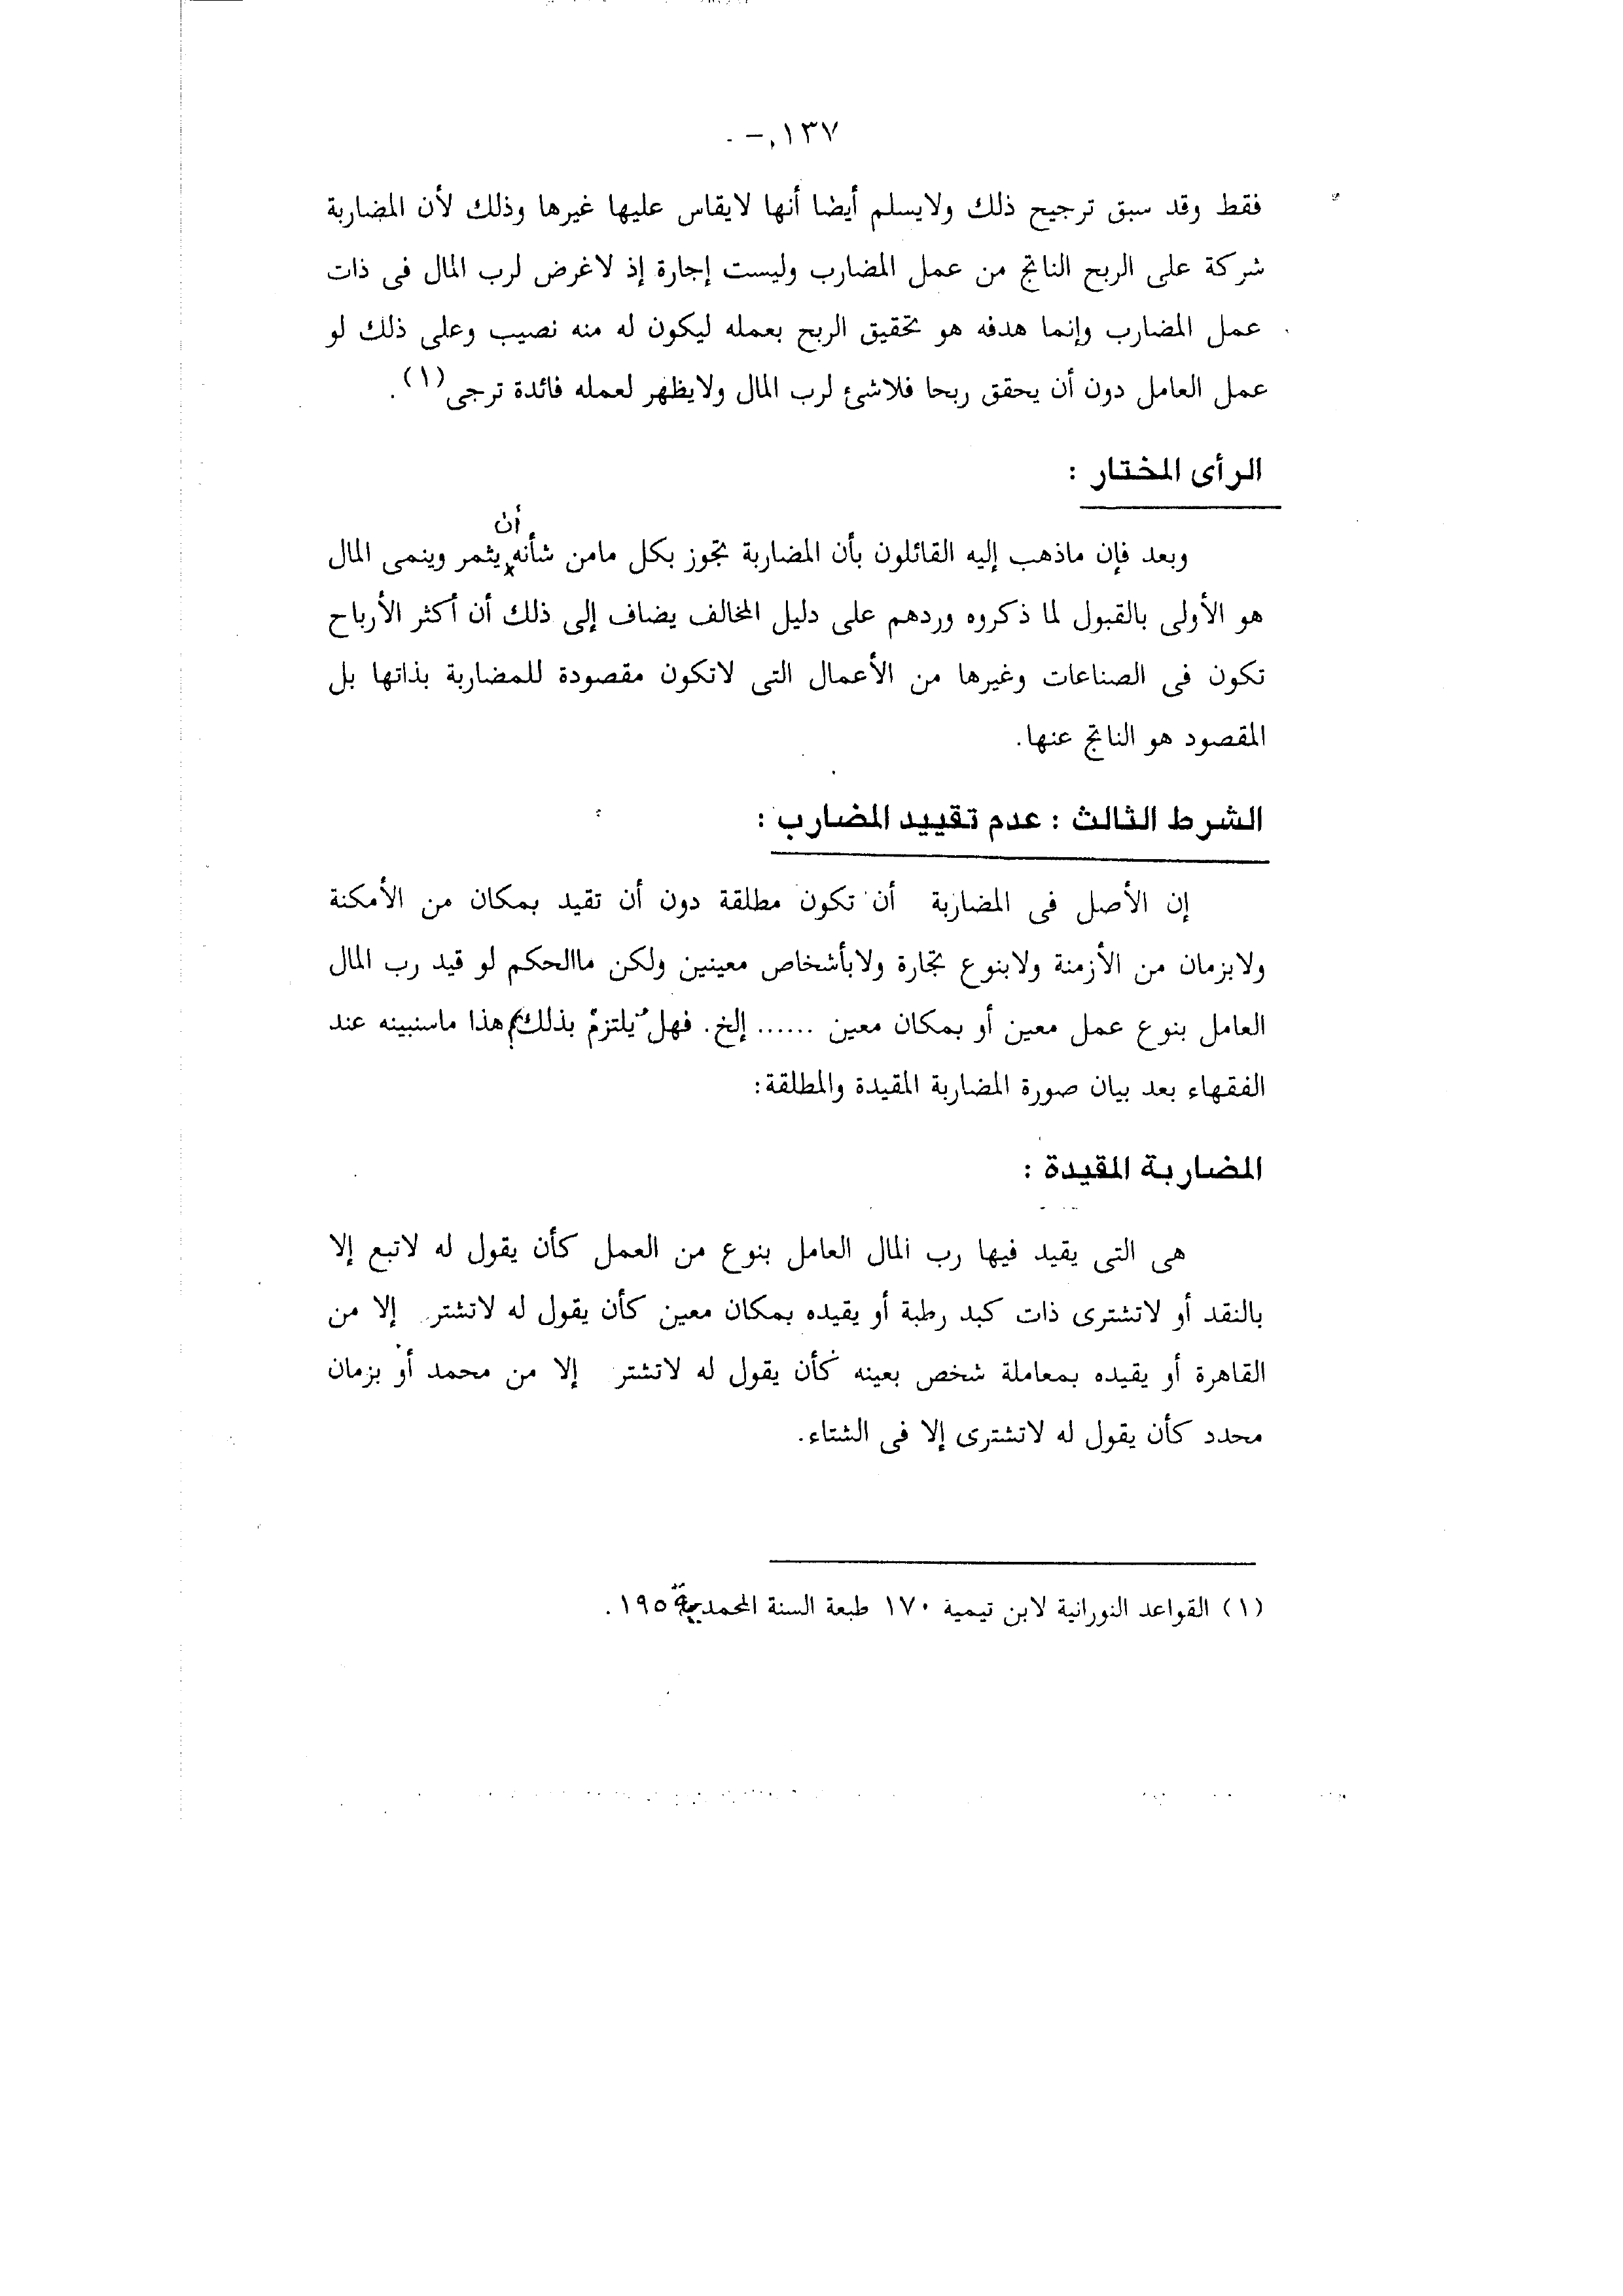 ١٣٧ -
فقط وقد سبق ترجيح ذلك ولايسلم أيضا أنها لايقاس عليها غيرها وذلك لأن المضاربة
شركة على الربح الناتج من عمل المضارب وليست إجارة إذ لاغرض لرب المال فى ذات
عمل المضارب وإنما هدفه هو تحقيق الربح بعمله ليكون له منه نصيب وعلى ذلك لو
عمل العامل دون أن يحقق ربحا فلاشئ لرب المال ولايظهر لعمله فائدة ترجى (١).
الرأى المختار :
وبعد فإن ماذهب إليه القائلون بأن المضاربة تجوز بكل مامن شأنه أن يثمر وينمى المال
هو الأولى بالقبول لما ذكروه وردهم على دليل المخالف يضاف إلى ذلك أن أكثر الأرباح
تكون فى الصناعات وغيرها من الأعمال التى لاتكون مقصودة للمضاربة بذاتها بل
المقصود هو الناتج عنها.
الشرط الثالث : عدم تقييد المضارب :
إن الأصل فى المضاربة أن تكون مطلقة دون أن تقيد بمكان من الأمكنة
ولابزمان من الأزمنة ولابنوع تجارة ولابأشخاص معينين ولكن ماالحكم لو قيد رب المال
العامل بنوع عمل معين أو بمكان معين ...... إلخ. فهل يلتزم بذلك؟ هذا ماسنبينه عند
الفقهاء بعد بيان صورة المضاربة المقيدة والمطلقة:
المضاربة المقيدة :
هى التى يقيد فيها رب المال العامل بنوع من العمل كأن يقول له لاتبع إلا
بالنقد أو لاتشترى ذات كبد رطبة أو يقيده بمكان معين كأن يقول له لاتشتر إلا من
القاهرة أو يقيده بمعاملة شخص بعينه كأن يقول له لاتشتر إلا من محمد أو بزمان
محدد كأن يقول له لاتشترى إلا فى الشتاء.
(١) القواعد النورانية لابن تيمية ١٧٠ طبعة السنة المحمدية ١٩٥.